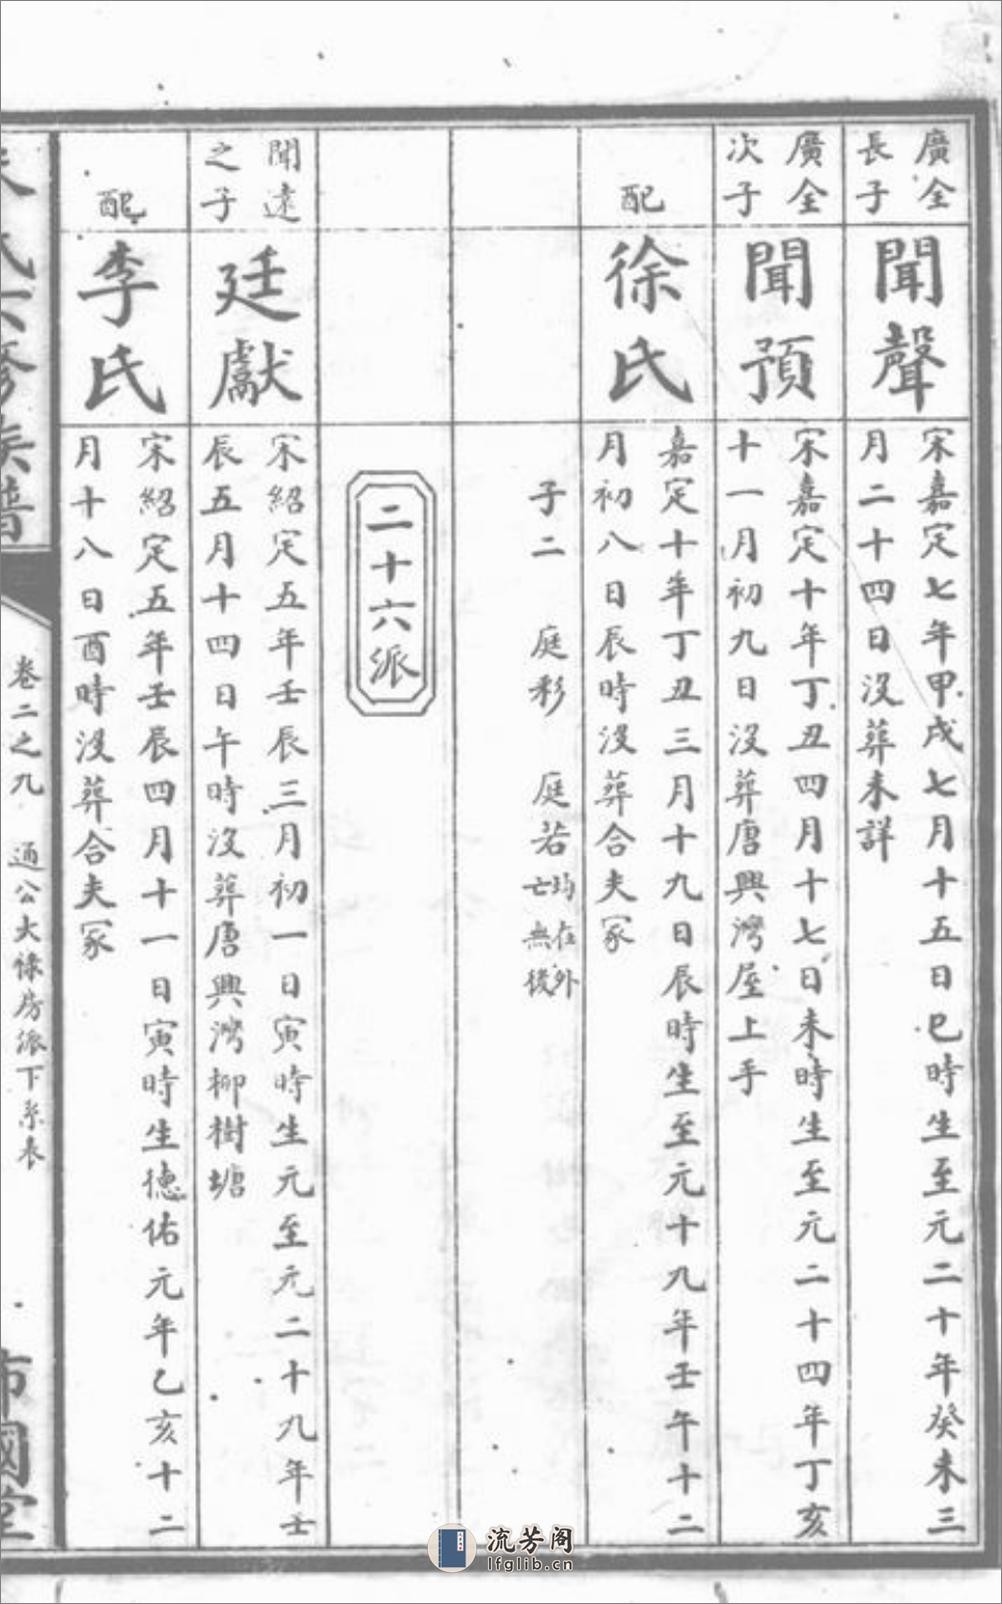 廣全
長子
聞聲
宋嘉定七年甲戌七月十五日巳時生至元二十年癸未三
月二十四日沒葬未詳
廣全
次子
聞預
宋嘉定十年丁丑四月十七日未時生至元二十四年丁亥
十一月初九日沒葬唐興灣屋上手
配
徐氏
嘉定十年丁丑三月十九日辰時生至元十九年壬午十二
月初八日辰時沒葬合夫冢
子二 庭彩 庭若
均在外
亡無後
二十六派
聞遠
之子
廷獻
宋紹定五年壬辰三月初一日寅時生元至元二十九年壬
辰五月十四日午時沒葬唐興灣柳樹塘
配
李氏
宋紹定五年壬辰四月十一日寅時生德佑元年乙亥十二
月十八日酉時沒葬合夫冢
氏六修族譜
卷二之九 通公大祿房派下系表
國堂
流芳阁
lfglib.cn